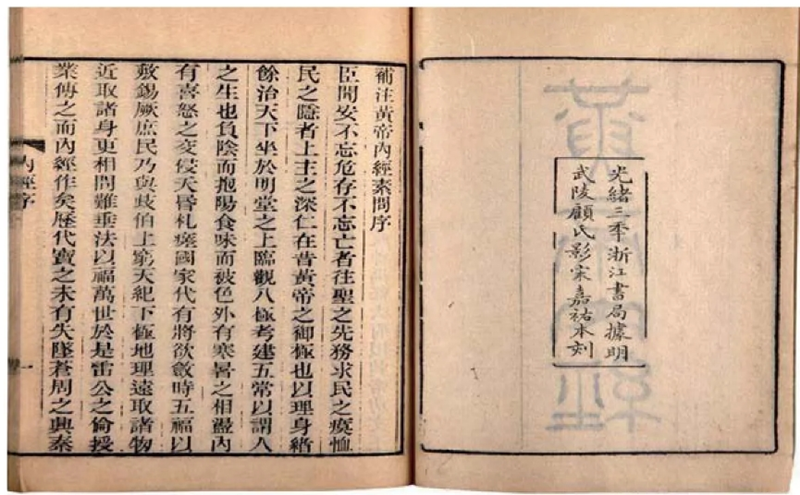 光緒三季浙江書局據明
武陵顧氏影宋嘉祐本刻
補注黃帝內經素問序
臣聞安不忘危存不忘亡者往聖之先務求民之瘼恤
民之隱者上主之深仁在昔黃帝之御極也以理身緒
餘治天下坐於明堂之上臨觀八極考建五常以謂人
之生也負陰而抱陽食味而被色外有寒暑之相盪內
有喜怒之交侵夭昏札瘥國家代有將欲斂時五福以
敷錫厥庶民乃與歧伯上窮天紀下極地理遠取諸物
近取諸身更相問難垂法以福萬世於是雷公之倫授
業傳之而內經作矣歷代寶之未有失墜蒼周之興秦
內經序
一